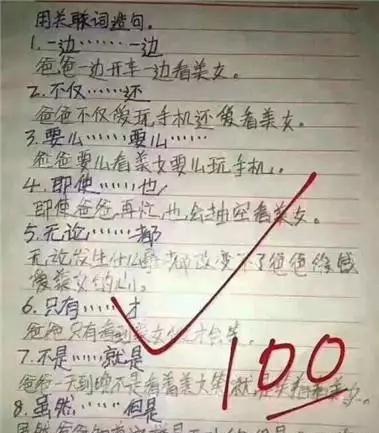 用关联词造句。
1.一边……一边
爸爸一边开车一边看美女。
2.不仅……还
爸爸不仅爱玩手机还爱看美女。
3.要么……要么……
爸爸要么看美女要么玩手机。
4.即使……也
即使爸爸再忙,也会抽空看美女。
5.无论……都
无论发生什么都改变不了爸爸
爱美女的心。
6.只有……才
爸爸只有看到美女才会笑。
7.不是……就是
爸爸一天到晚不是看着美女笑就是
8.虽然……但是
100